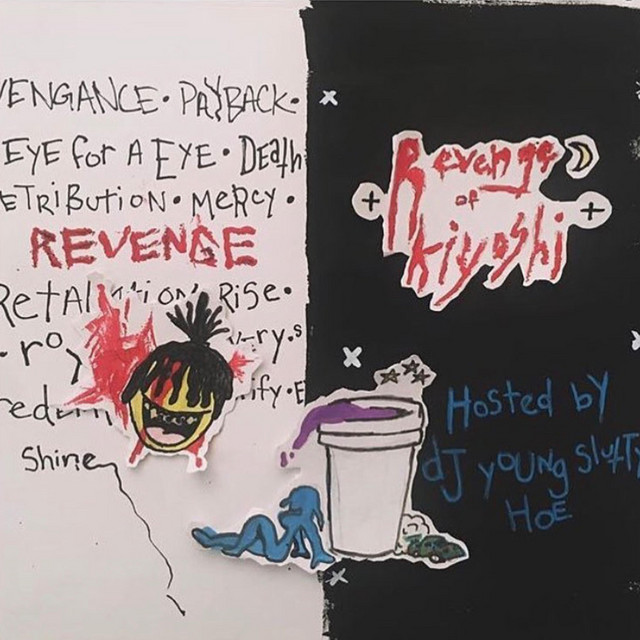 VENGANCE • PAYBACK •
EYE for A EYE • DEATH
ETRIBUTION • MERCY •
REVENGE
RISE •
Shine
Revenge
of
kiyoshi
Hosted by
DJ YOUNG SLUTTY
HOE